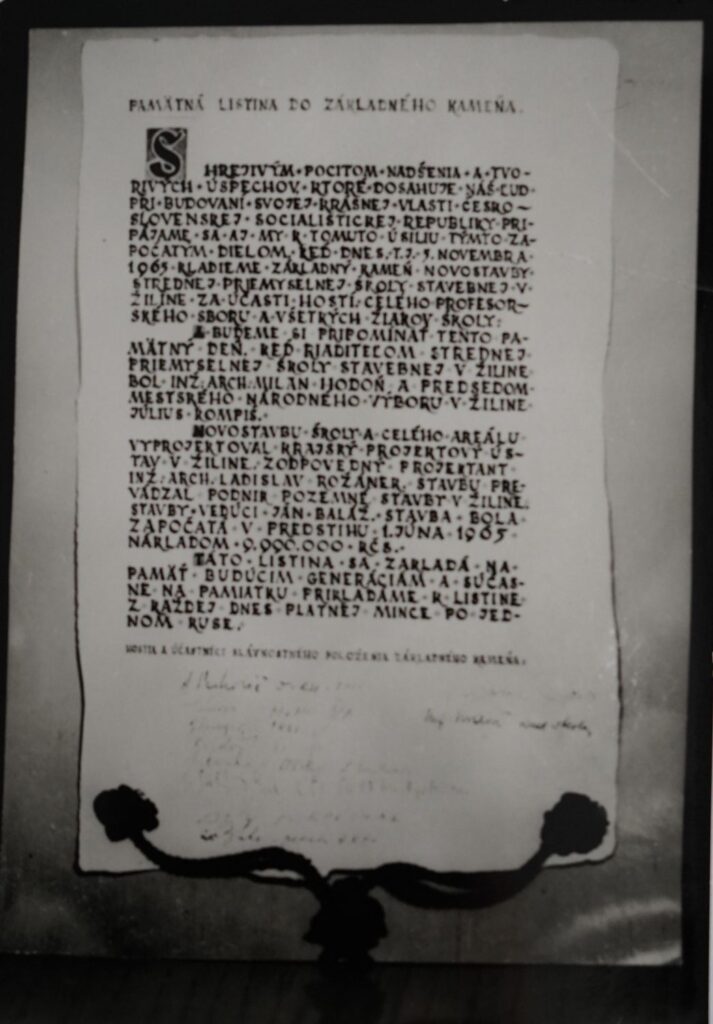 PAMÄTNÁ LISTINA DO ZÁKLADNÉHO KAMEŇA.
S HREJIVÝM·POCITOM·NADŠENIA·A·TVO-
RIVÝCH·ÚSPECHOV, KTORÉ·DOSAHUJE·NÁŠ·ĽUD·
PRI·BUDOVANÍ·SVOJEJ·KRÁSNEJ·VLASTI·ČESKO-
SLOVENSKEJ·SOCIALISTICKEJ·REPUBLIKY·PRI-
PÁJAME·SA·AJ·MY·K·TOMUTO·ÚSILIU·TÝMTO·ZA-
POČATÝM·DIELOM, KEĎ·DNES, T.J. 5. NOVEMBRA·
1965·KLADIEME·ZÁKLADNÝ·KAMEŇ·NOVOSTAVBY·
STREDNEJ·PRIEMYSELNEJ·ŠKOLY·STAVEBNEJ·V·
ŽILINE·ZA·ÚČASTI·HOSTÍ, CELÉHO·PROFESOR-
SKÉHO·SBORU·A·VŠETKÝCH·ŽIAKOV·ŠKOLY.
A·BUDEME·SI·PRIPOMÍNAŤ·TENTO·PA-
MÄTNÝ·DEŇ, KEĎ·RIADITEĽOM·STREDNEJ·
PRIEMYSELNEJ·ŠKOLY·STAVEBNEJ·V·ŽILINE·
BOL·INŽ. ARCH. MILAN·HODOŇ, A·PREDSEDOM·
MESTSKÉHO·NÁRODNÉHO·VÝBORU·V·ŽILINE·
JÚLIUS·KOMPIŠ.
NOVOSTAVBU·ŠKOLY·A·CELÉHO·AREÁLU·
VYPROJEKTOVAL·KRAJSKÝ·PROJEKTOVÝ·ÚS-
TAV·V·ŽILINE, ZODPOVEDNÝ·PROJEKTANT·
INŽ. ARCH. LADISLAV·ROŽÁNEK, STAVBU·PRE-
VÁDZAL·PODNIK·POZEMNÉ·STAVBY·V·ŽILINE,
STAVBY·VEDÚCI·JÁN·BALÁŽ. STAVBA·BOLA·
ZAPOČATÁ·V·PREDSTIHU·1. JÚNA·1965·
NÁKLADOM·9.990.000·KČS.
TÁTO·LISTINA·SA·ZAKLADÁ·NA·
PAMÄŤ·BUDÚCIM·GENERÁCIÁM·A·SÚČAS-
NE·NA·PAMIATKU·PRIKLADÁME·K·LISTINE·
Z·KAŽDEJ·DNES·PLATNEJ·MINCE·PO·JED-
NOM·KUSE.
HOSTIA A ÚČASTNÍCI SLÁVNOSTNÉHO POLOŽENIA ZÁKLADNÉHO KAMEŇA: